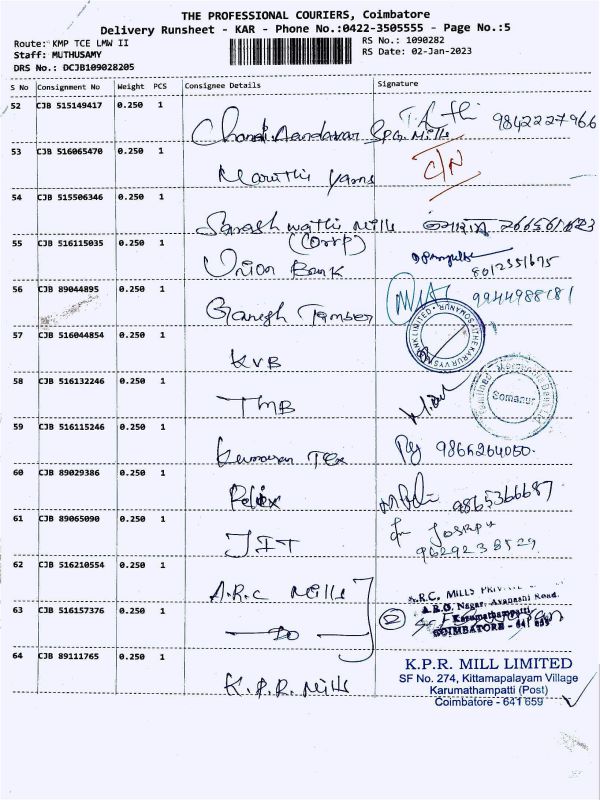 THE PROFESSIONAL COURIERS, Coimbatore
Delivery Runsheet - KAR - Phone No.:0422-3505555 - Page No.:5
Route: KMP TCE LMW II
RS No.: 1090282
Staff: MUTHUSAMY
RS Date: 02-Jan-2023
DRS No.: DCJB109028205
S No Consignment No Weight PCS Consignee Details Signature
52 CJB 515149417 0.250 1
Chandi Aandavar Spg. Mills 9842227966
53 CJB 516065470 0.250 1
Maruthi yarns C/N
54 CJB 515506346 0.250 1
Sarashwathi Mills
(Corp)
55 CJB 516115035 0.250 1
Union Bank 8012351675
56 CJB 89044895 0.250 1
Ganesh Tamber 9944988181
57 CJB 516044854 0.250 1
KVB
58 CJB 516132246 0.250 1
TMB
Somanur
59 CJB 516115246 0.250 1
Kumaran Tex 9865264050.
60 CJB 89029386 0.250 1
Felix 9865366687
61 CJB 89065090 0.250 1
JIT Joseph
9629238529
62 CJB 516210554 0.250 1
A.R.C Mills
A.R.C. MILLS PRIVATE
A.R.C. Nagar, Avanashi Road,
63 CJB 516157376 0.250 1
Do 2
Karumathampatti,
COIMBATORE - 641 659
64 CJB 89111765 0.250 1
K.P.R. Mills
K.P.R. MILL LIMITED
SF No. 274, Kittampalayam Village
Karumathampatti (Post)
Coimbatore - 641 659